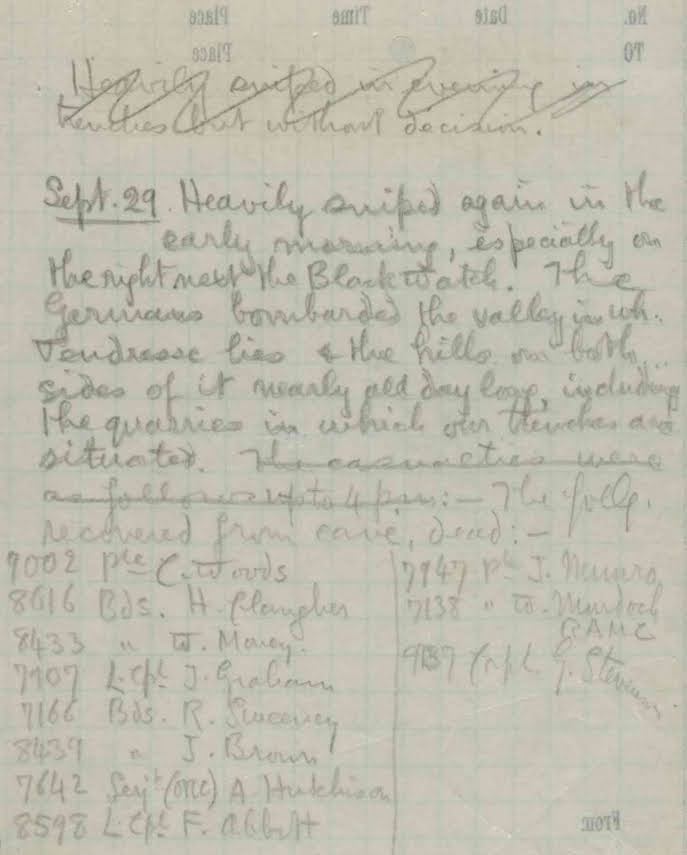 No. Date Time Place
TO Place
Heavily sniped in evening in
trenches but without decision.
Sept. 29. Heavily sniped again in the
early morning, especially on
the right next the Black Watch. The
Germans bombarded the valley in wh.
Vendresse lies & the hills on both
sides of it nearly all day long, including
the quarries in which our trenches are
situated. The casualties were
as follows up to 4 p.m:- The follg.
recovered from cave, dead:-
7002 Pte C. Woods
8616 Bds. H. Clangher
8433 " W. Money.
7107 L.Cpl J. Graham
7166 Bds. R. Sweeney
8439 " J. Brown
7642 Serjt (ORC) A Hutchison
8598 L.Cpl F. Abbott
7947 Pt J. Munro
7138 " W. Murdoch
RAMC
9137 Corpl. G. Stevenson.
From